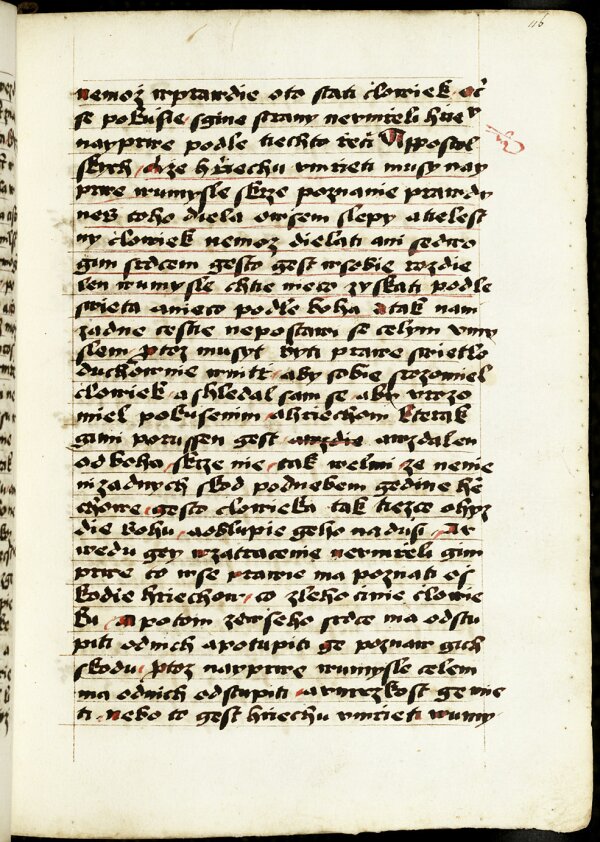 116
nemoz wprawdie oto stati clowiek oč
se pokusie sgine strany nevmřeli hřie
nayprwe podle tiechto řečí Appostol
skych zie hřiechu vmrieti musy nay
prwe wumysle skrze poznanie prawdy
neb toho diela owsem slepy a tielest
ny clowiek nemoz dielati ani sedwo
gim srdcem gesto gest wsobie rozdie
len wumysle chtie nieco zyskati podle
swieta anieco podle boha a tak nam
zadne cestie nepostawi se celym vmy
slem ptoz musyt byti prawe swietlo
duchownie wnitř aby sobie srozomiel
clowiek ashledal sam se aby vrozo
miel pokusenim ahriechom kterak
gimi porussen gest awzdie awzdalen
odboha skrze nie tak welmi ze nenie
nizadnych skod podnebem gedine hře
chowe gesto clowieka tak tiezce ohyz
die bohu aobłupie geho nadusi
wedu gey wzatracenie nevmřeli gim
prwe to wse prawie ma poznati os
kodie hřiechow co zleho cinie clowie
ku a potom zewseho srdce ma odstu
piti odnich apotupiti ge poznaw gich
skodu ptoz nayprwe wumysle celem
ma odnich odstupiti awmrzkost ge mie
ti nebo to gest hřiechu vmřieti wumy